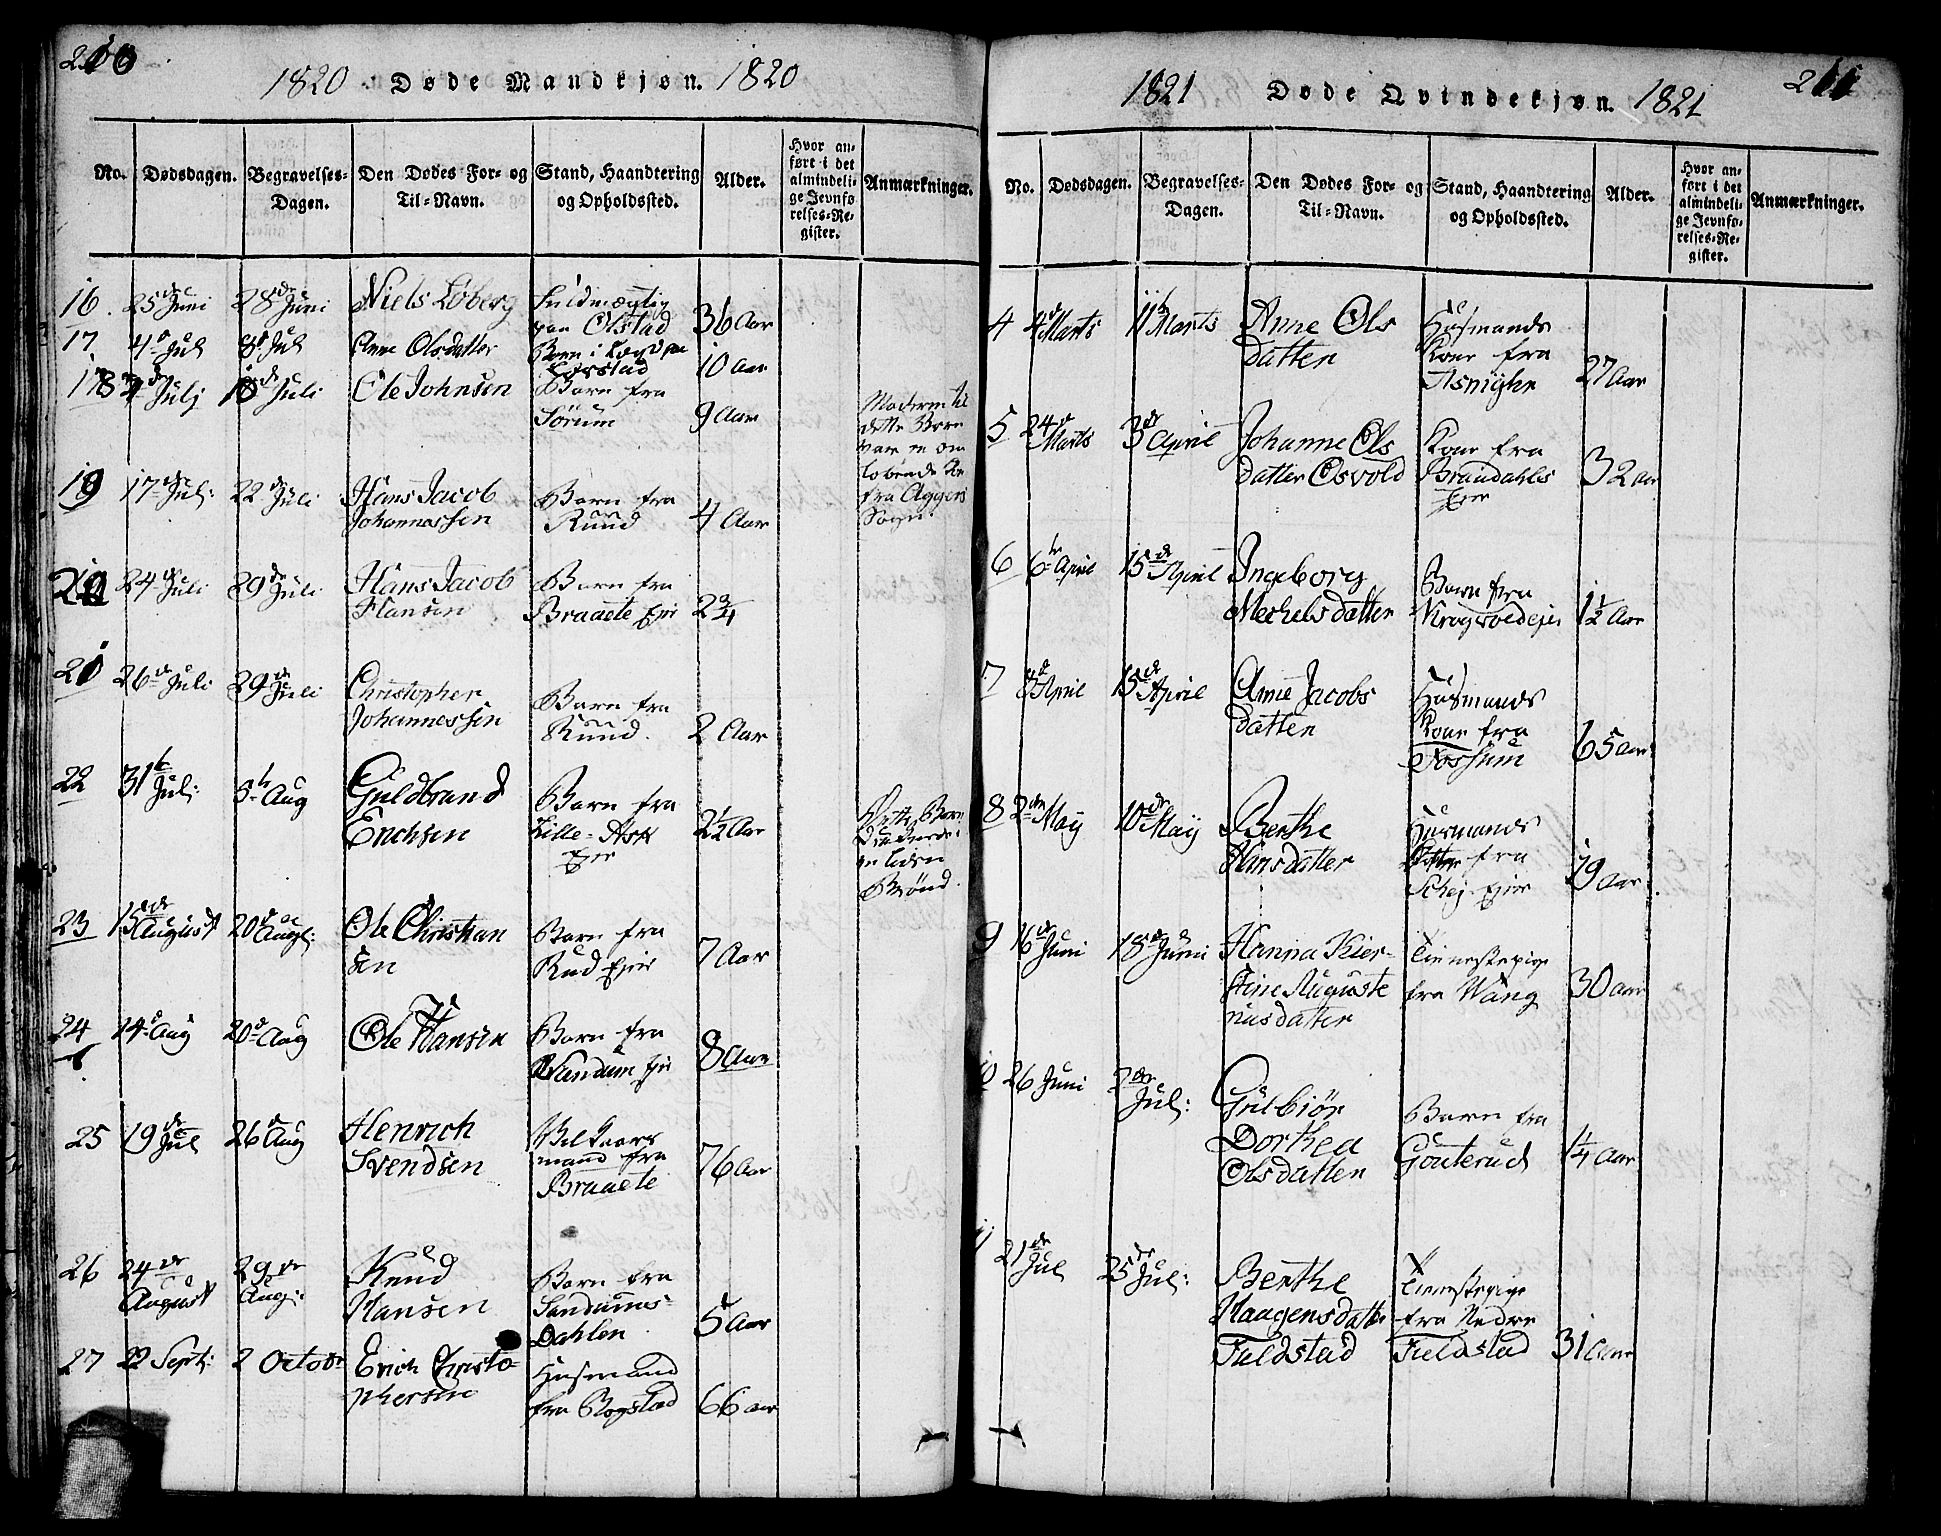 210
1820 Døde Mandkjøn. 1820
No. Dødsdagen. Begravelses-Dagen. Den Dødes For- og Til-Navn. Stand, Haandtering og Opholdssted. Alder. Hvor anført i det almindelige Jevnførelses-Register. Anmærkninger.
16 25de Juni 28de Juni Niels Løberg
paa Olstad 36 Aar
17 4de Jul 8de Jul Anne Olsdatter
10 aar
18 Julj 18de Juli Ole Johnsen Barn fra
Sørum 9 Aar
Moderen til
dette Barn
var en om
løbende
fra Aggers
Sogn
19 17de Jul: 22de Juli Hans Jacob
Johannessen
Barn fra
Ruud 4 Aar
20 24de Juli 29de Juli Hans Jacob
Hansen
Barn fra
Braaete Eje 2 3/4
21 26de Juli 29de Juli Christopher
Johannessen
Barn fra
Ruud. 2 Aar
22 31te Jul: 5te Aug Guldbrand
Erichsen
Barn fra
Lille-Ask
Ejer 2½ Aar
Dette Barn
druknede i
en liden
Brønd.
23 15de August 20de Augt: Ole Christian
sen
Barn fra
Rud Ejer 7 Aar
24 14de Aug 20de Aug Ole Hansen
Barn fra
Sandum Eje 8 Aar
25 19de Jul 26de Aug Henrich
Svendsen
mand fra
Braaete 76 Aar
26 24de August 29de Aug: Knud
Hansen
Barn fra
Sandums-
Dahlen 5 Aar
27 22 Sept: 2 Octobr Erich Christo-
phersen
Husmand
fra Rogstad 66 aar
211
1821 Døde Qvindekjøn. 1821
No. Dødsdagen. Begravelses-Dagen. Den Dødes For- og Til-Navn. Stand, Haandtering og Opholdssted. Alder. Hvor anført i det almindelige Jevnførelses-Register. Anmærkninger.
4 4de Marts 11te Marts Anne Ols
datter
Husmands
Kone fra
27 Aar
5 24de Marts 3de April Johanne Ols
datter Osvold
Kone fra
Braadahls
Ejer 32 aar
6 6te April 15de April Ingeborg
Mechelsdatter
Barn fra
Krogsvoldejer 1½ Aar
7 8de April 15de April Anne Jacobs
datter
Husmands
Kone fra
Fossum 65 aar
8 2den May 10de May Berthe
Hansdatter
Husmands
Datter fra
Ejer 19 Aar
9 16de Juni 18de Juni Hanna Kier-
stine Auguste
nusdatter
Tienestepige
fra Wang 30 aar
10 26 Juni 2den Jul: Gulbiør
Dorthea
Olsdatter
Barn fra
Gouterud 1¼ Aar
11 21de Jul 25de Jul: Berthe
Haagensdatter
Fieldstad
Tienestepige
fra Nedre
Fieldstad 31 aar